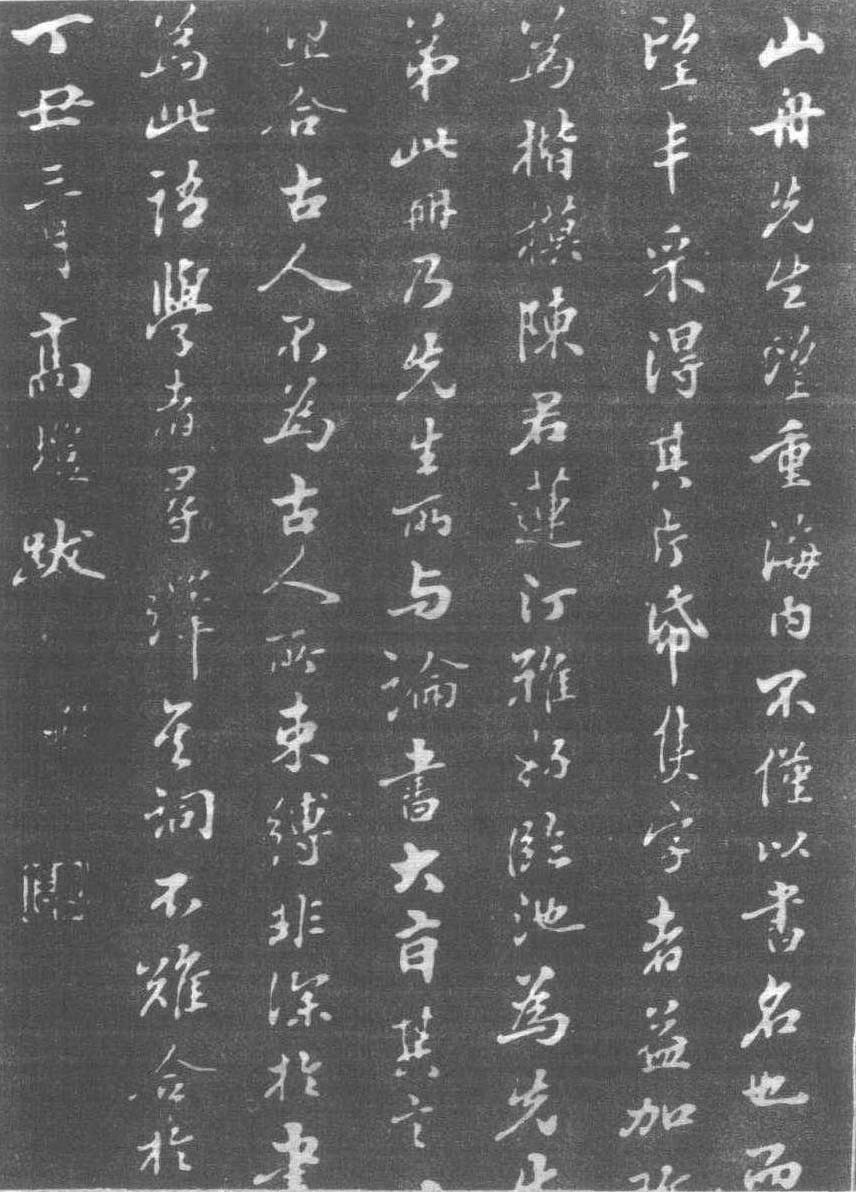 山舟先生望重海內不僅以書名也而
望丰采得其片帋隻字者益加
為楷模陳君蓮汀雅好臨池為先生
弟此冊乃先生所与論書大旨其言
迎合古人不為古人所束縛非深於書
為此語學者尋繹其詞不難合於
丁丑三月高塏跋